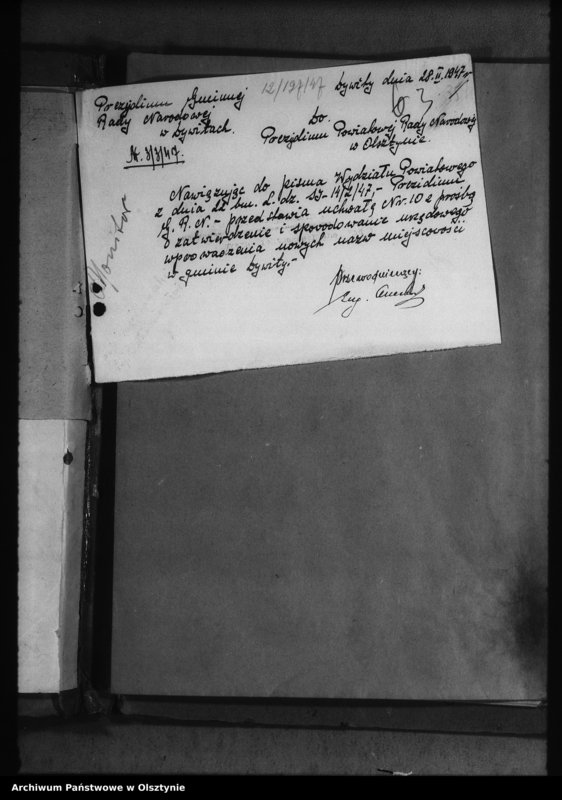 12/197/47 Dywity dnia 28.II.1947 r
Prezydium Gminnej
Rady Narodowej
w Dywitach.
Do
Prezydium Powiatowej Rady Narodowej
w Olsztynie.
N. 3/3/47.
Nawiązując do pisma Wydziału Powiatowego
z dnia 22 bm. L.dz. SJ-14/2/47,- Prezydium
G. R. N. - przedstawia uchwałę Nr. 10 z prośbą
o zatwierdzenie i spowodowanie urzędowego
wprowadzenia nowych nazw miejscowości
w gminie Dywity.-
Monitor
Przewodniczący:
Archiwum Państwowe w Olsztynie